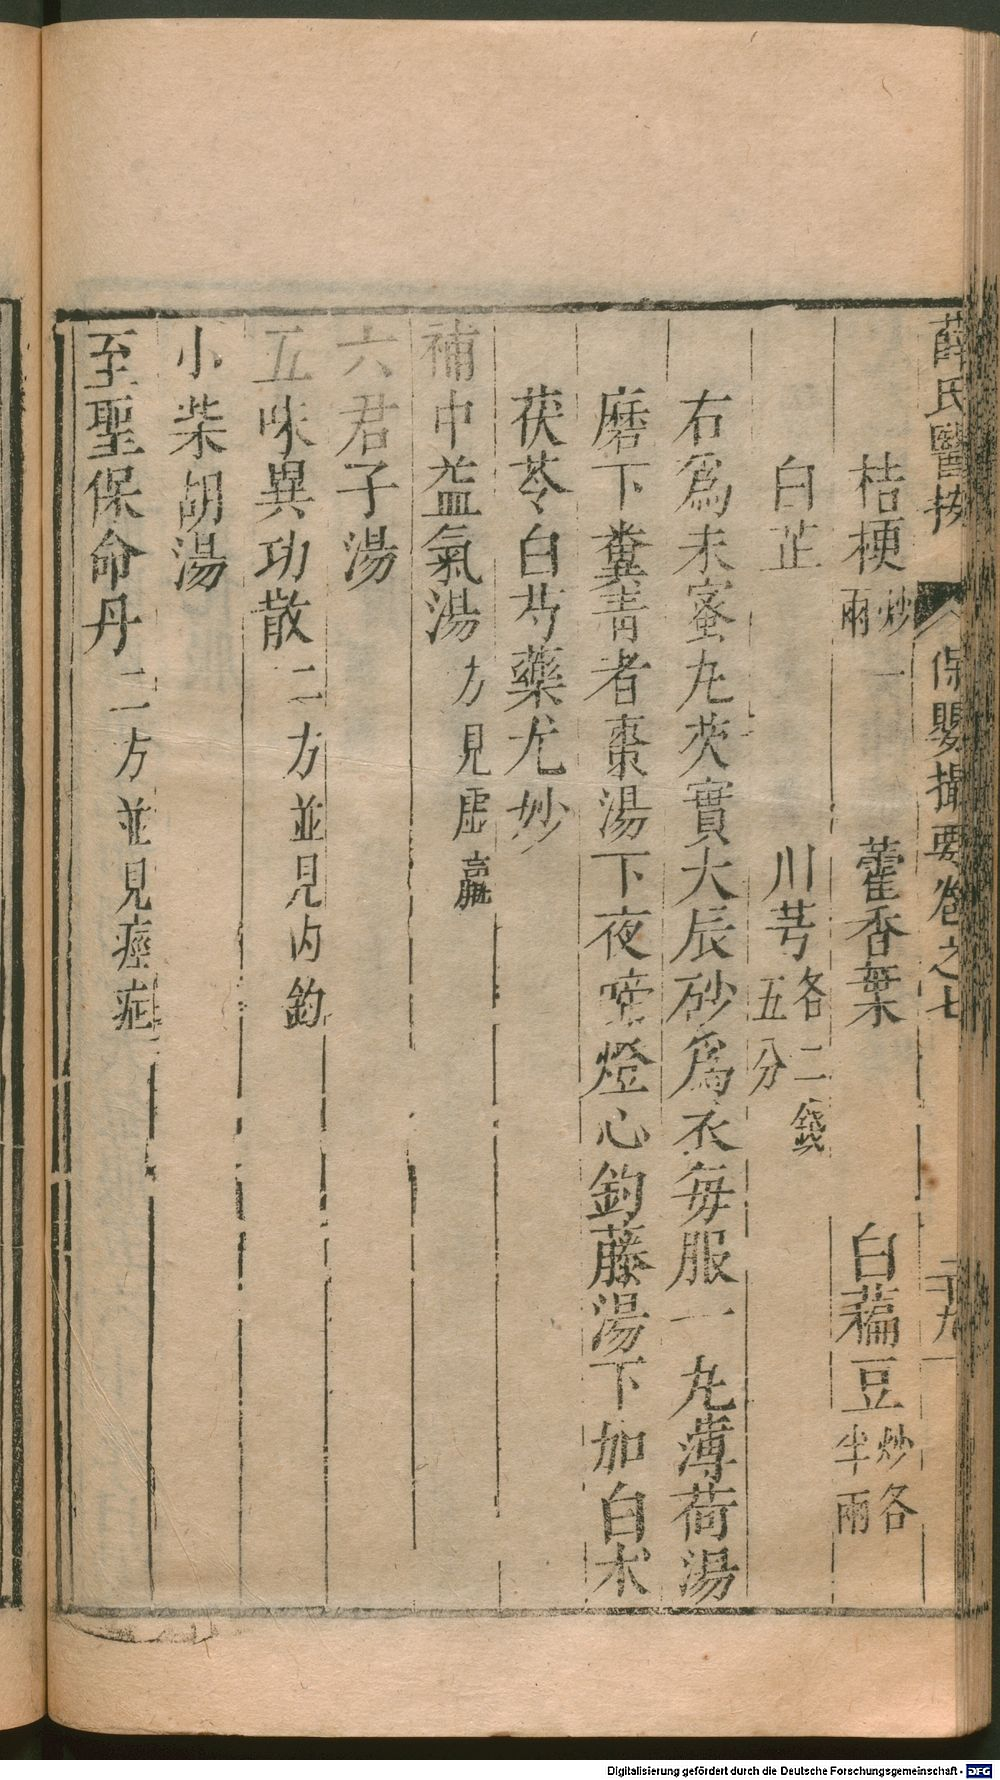 薛氏醫按 保嬰撮要卷之七 二十九
桔梗炒一兩 藿香葉 白藊豆炒各半兩
白芷 川芎各二錢五分
右爲末蜜丸芡實大辰砂爲衣每服一丸薄荷湯
磨下糞青者棗湯下夜啼燈心鈎藤湯下加白朮
茯苓白芍藥尤妙
補中益氣湯方見虛羸
六君子湯
五味異功散二方並見內鈎
小柴胡湯
至聖保命丹二方並見痙症
Digitalisierung gefördert durch die Deutsche Forschungsgemeinschaft - DFG